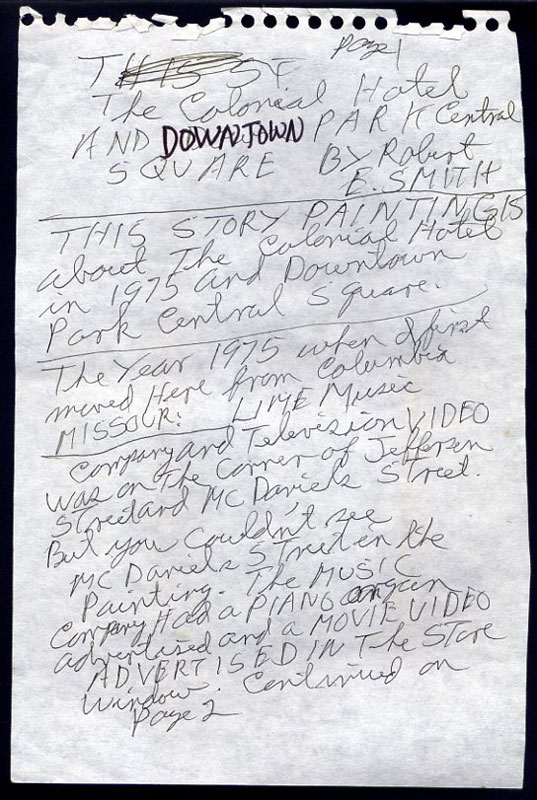 Page 1
The Colonial Hotel
AND DOWNTOWN PARK Central
SQUARE BY Robert
E. SMITH
THIS STORY PAINTING IS
about The Colonial Hotel
in 1975 and Downtown
Park Central Square.
The Year 1975 when I first
moved Here from Columbia
MISSOURI LIME Music
Company and Television VIDEO
was on the Corner of Jefferson
Street and MC Daniels Street.
But you Couldn't see
MC Daniels Street in the
Painting. The MUSIC
Company Had a PIANO organ
advertised and a MOVIE VIDEO
ADVERTISED IN The STore
Window. Continued on
Page 2